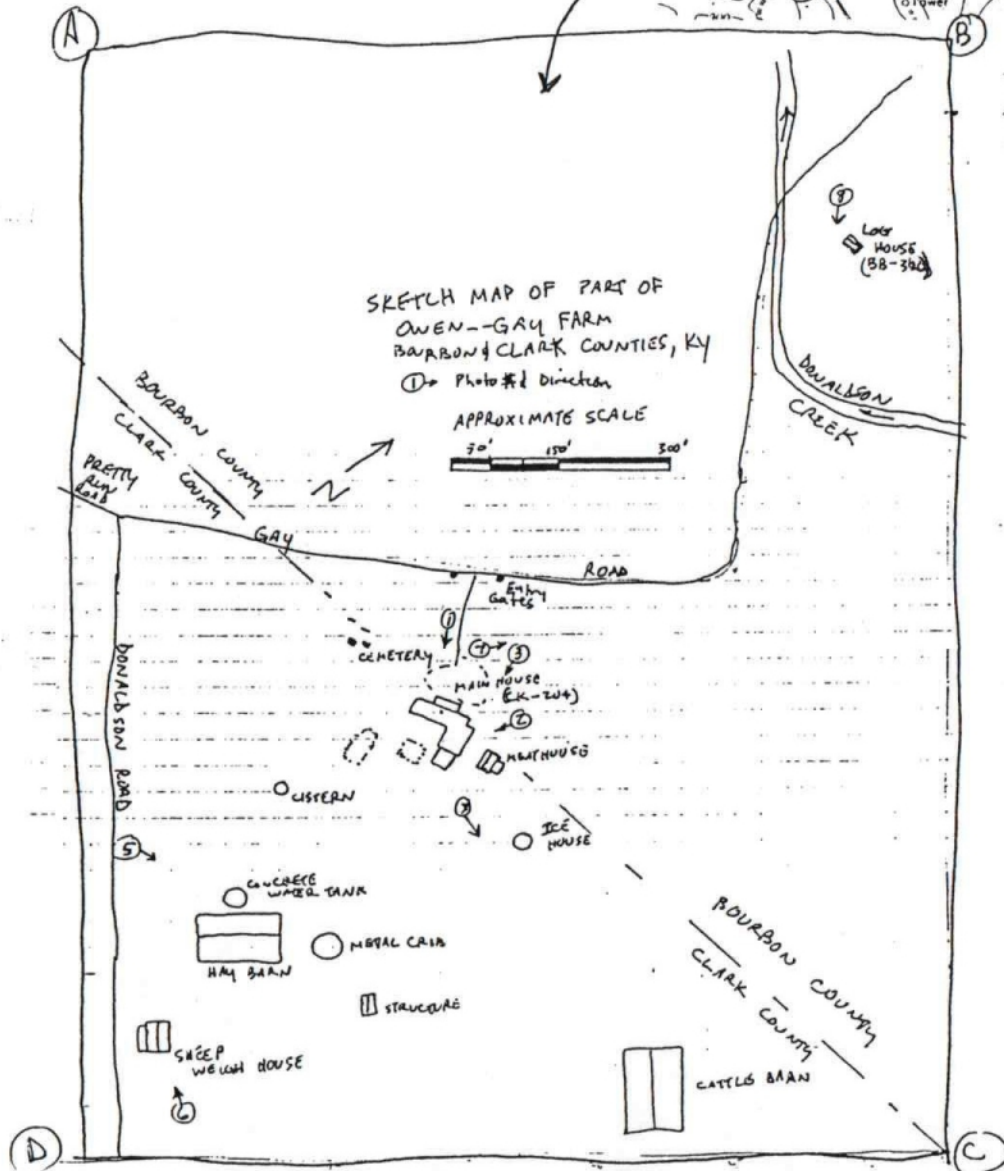 A
B
Tower
8
LOG
HOUSE
SKETCH MAP OF PART OF
OWEN--GAY FARM
BOURBON & CLARK COUNTIES, KY
1 Photo # & Direction
APPROXIMATE SCALE
150'
300'
DONALDSON
CREEK
BOURBON COUNTY
CLARK COUNTY
PRETTY
RUN
ROAD
N
GAY
ROAD
Entry
Gates
1
CEMETERY
3
MAIN HOUSE
2
MEATHOUSE
DONALDSON ROAD
CISTERN
ICE
HOUSE
5
CONCRETE
WATER TANK
HAY BARN
METAL CRIB
STRUCTURE
SHEEP
WEIGH HOUSE
6
BOURBON COUNTY
CLARK COUNTY
CATTLE BARN
D
C